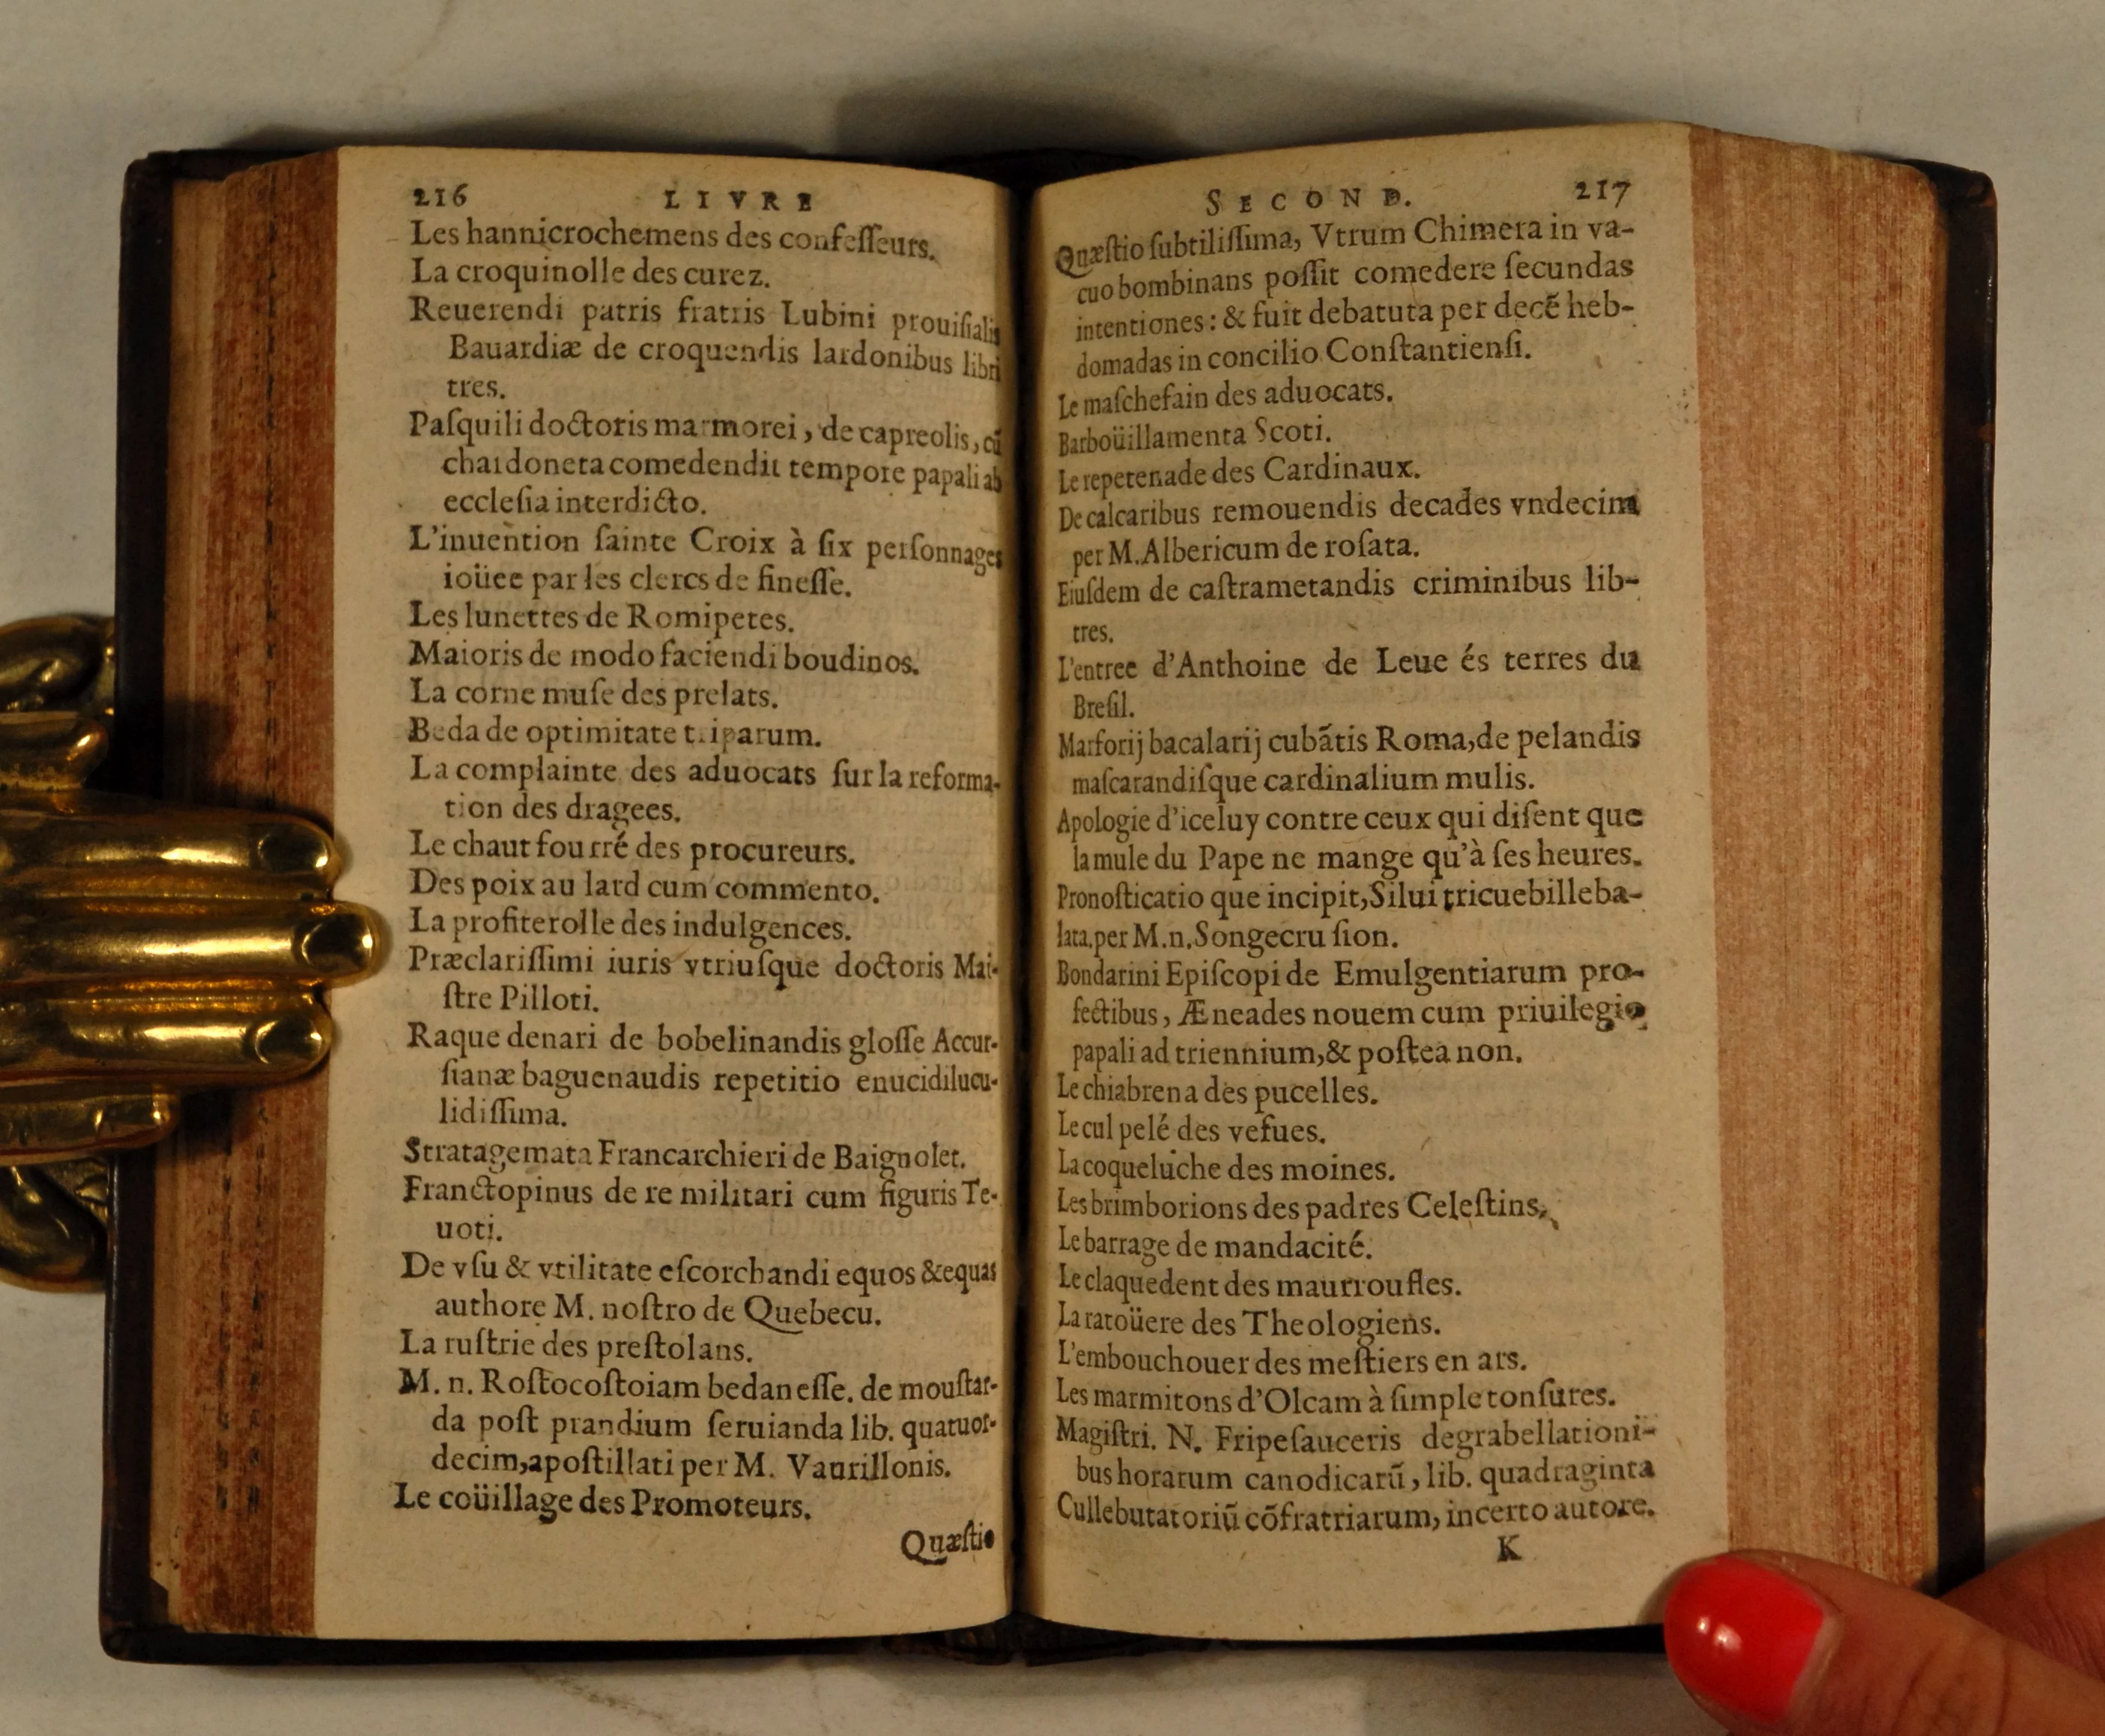 216 LIVRE
Les hannicrochemens des confeſſeurs.
La croquinolle des curez.
Reuerendi patris fratris Lubini prouiſialis
Bauardiæ de croquendis lardonibus libri
tres.
Paſquili doctoris marmorei, de capreolis, cũ
chardoneta comedendit tempore papali ab
eccleſia interdicto.
L'inuention ſainte Croix à ſix perſonnages
ioüee par les clercs de fineſſe.
Les lunettes de Romipetes.
Maioris de modo faciendi boudinos.
La corne muſe des prelats.
Beda de optimitate triparum.
La complainte des aduocats ſur la reforma-
tion des dragees.
Le chaut fourré des procureurs.
Des poix au lard cum commento.
La profiterolle des indulgences.
Præclariſſimi iuris vtriuſque doctoris Mai-
ſtre Pilloti.
Raque denari de bobelinandis gloſſe Accur-
ſianæ baguenaudis repetitio enucidilucu-
lidiſſima.
Stratagemata Francarchieri de Baignolet.
Franctopinus de re militari cum figuris Te-
uoti.
De vſu & vtilitate eſcorchandi equos & equas
authore M. noſtro de Quebecu.
La ruſtrie des preſtolans.
M. n. Roſtocoſtoiam bedaneſſe. de mouſtar-
da poſt prandium ſeruianda lib. quatuor-
decim, apoſtillati per M. Vaurillonis.
Le coüillage des Promoteurs.
Quæſtio
SECOND. 217
Quæſtio ſubtiliſſima, Vtrum Chimera in va-
cuo bombinans poſſit comedere ſecundas
intentiones: & fuit debatuta per decẽ heb-
domadas in concilio Conſtantienſi.
Le maſchefain des aduocats.
Barboüillamenta Scoti.
Le repetenade des Cardinaux.
De calcaribus remouendis decades vndecim
per M. Albericum de roſata.
Eiuſdem de caſtrametandis criminibus lib-
tres.
L'entree d'Anthoine de Leue és terres du
Breſil.
Marforij bacalarij cubãtis Roma, de pelandis
maſcarandiſque cardinalium mulis.
Apologie d'iceluy contre ceux qui diſent que
la mule du Pape ne mange qu'à ſes heures.
Pronoſticatio que incipit, Silui tricuebilleba-
lata, per M. n. Songecruſion.
Bondarini Epiſcopi de Emulgentiarum pro-
fectibus, Æneades nouem cum priuilegio
papali ad triennium, & poſtea non.
Le chiabrena des pucelles.
Le cul pelé des vefues.
La coqueluche des moines.
Les brimborions des padres Celeſtins.
Le barrage de mandacité.
Le claquedent des maurroufles.
La ratoüere des Theologiens.
L'embouchouer des meſtiers en ars.
Les marmitons d'Olcam à ſimple tonſures.
Magiſtri. N. Fripeſauceris degrabellationi-
bus horarum canodicarũ, lib. quadraginta
Cullebutatoriũ cõfratriarum, incerto autore.
K